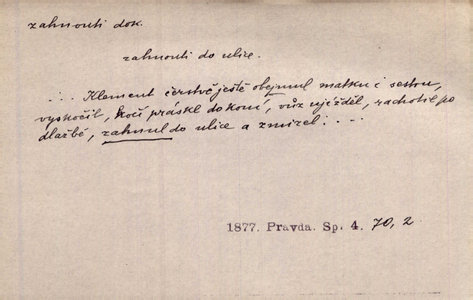 zahnouti dok.
zahnouti do ulice.
... Klement čerstvě ještě obejmul matku i sestru,
vyskočil, kočí práskl do koní, vůz ujížděl, rachotil po
dlažbě, zahnul do ulice a zmizel....
1877. Pravda. Sp. 4. 70, 2